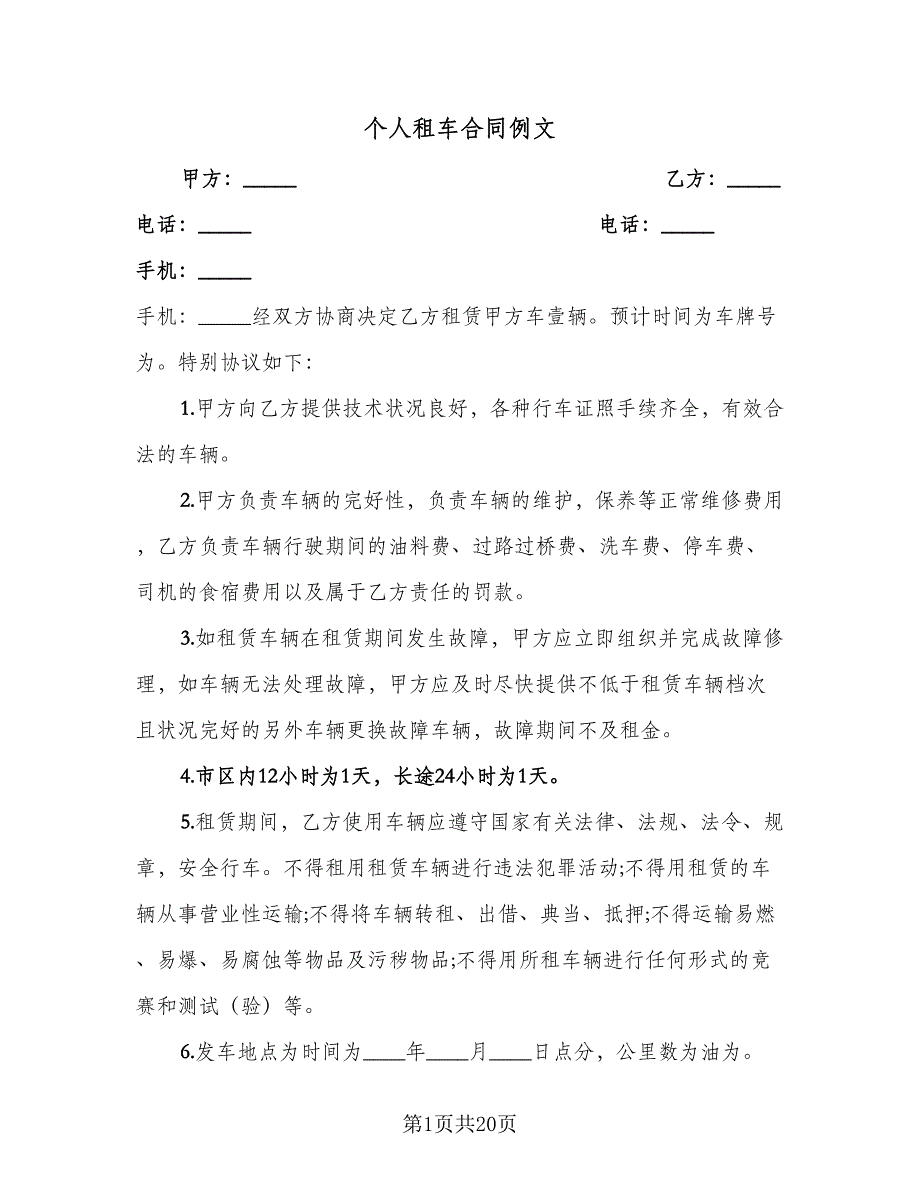 个人租车合同例文
甲方：_____ 乙方：_____
电话：_____ 电话：_____
手机：_____
手机：_____经双方协商决定乙方租赁甲方车壹辆。预计时间为车牌号
为。特别协议如下：
1.甲方向乙方提供技术状况良好，各种行车证照手续齐全，有效合
法的车辆。
2.甲方负责车辆的完好性，负责车辆的维护，保养等正常维修费用
，乙方负责车辆行驶期间的油料费、过路过桥费、洗车费、停车费、
司机的食宿费用以及属于乙方责任的罚款。
3.如租赁车辆在租赁期间发生故障，甲方应立即组织并完成故障修
理，如车辆无法处理故障，甲方应及时尽快提供不低于租赁车辆档次
且状况完好的另外车辆更换故障车辆，故障期间不及租金。
4.市区内12小时为1天，长途24小时为1天。
5.租赁期间，乙方使用车辆应遵守国家有关法律、法规、法令、规
章，安全行车。不得租用租赁车辆进行违法犯罪活动;不得用租赁的车
辆从事营业性运输;不得将车辆转租、出借、典当、抵押;不得运输易燃
、易爆、易腐蚀等物品及污秽物品;不得用所租车辆进行任何形式的竞
赛和测试（验）等。
6.发车地点为时间为____年____月____日点分，公里数为油为。
第1页共20页